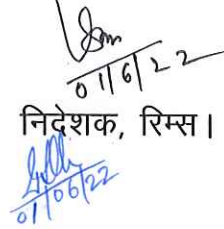 01/6/22
निदेशक, रिम्स।
01/06/22